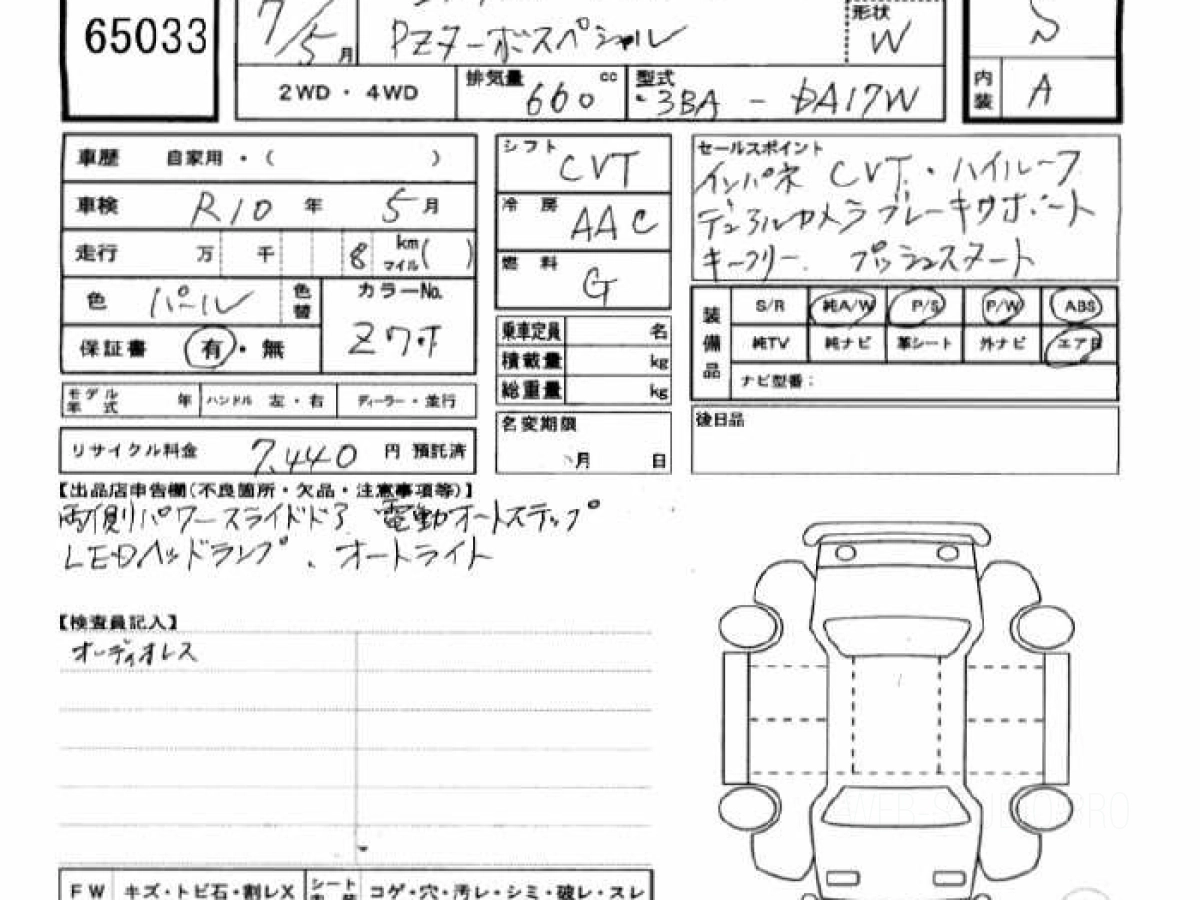 65033
7/5月
PZターボスペシャル
形状
W
S
2WD・4WD
排気量 660 cc
型式 3BA - DA17W
内装 A
車歴 自家用・( )
車検 R10年 5月
走行 万 千 8 km マイル( )
色 パール 色替
カラーNo.
Z7T
保証書 有・無
モデル年式 年 ハンドル 左・右 ディーラー・並行
リサイクル料金 7,440 円 預託済
シフト CVT
冷房 AAC
燃料 G
乗車定員 名
積載量 kg
総重量 kg
名変期限
月 日
セールスポイント
インパネ CVT・ハイルーフ
デュアルカメラブレーキサポート
キーフリー、プッシュスタート
装備品
S/R 純A/W P/S P/W ABS
純TV 純ナビ 革シート 外ナビ エアB
ナビ型番:
後日品
【出品店申告欄(不良箇所・欠品・注意事項等)】
両側パワースライドドア 電動オートステップ
LEDヘッドランプ、オートライト
【検査員記入】
オーディオレス
FW キズ・トビ石・割レX シート コゲ・穴・汚レ・シミ・破レ・スレ